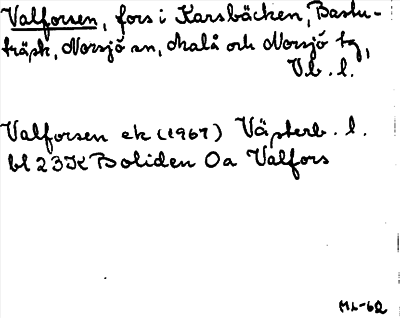 Valforsen, fors i Karsbäcken, Bastu-
träsk, Norsjö sn, Malå och Norsjö tg,
Vb. l.
Valforsen ek (1967) Västerb. l.
bl 23K Boliden 0a Valfors
ML-62